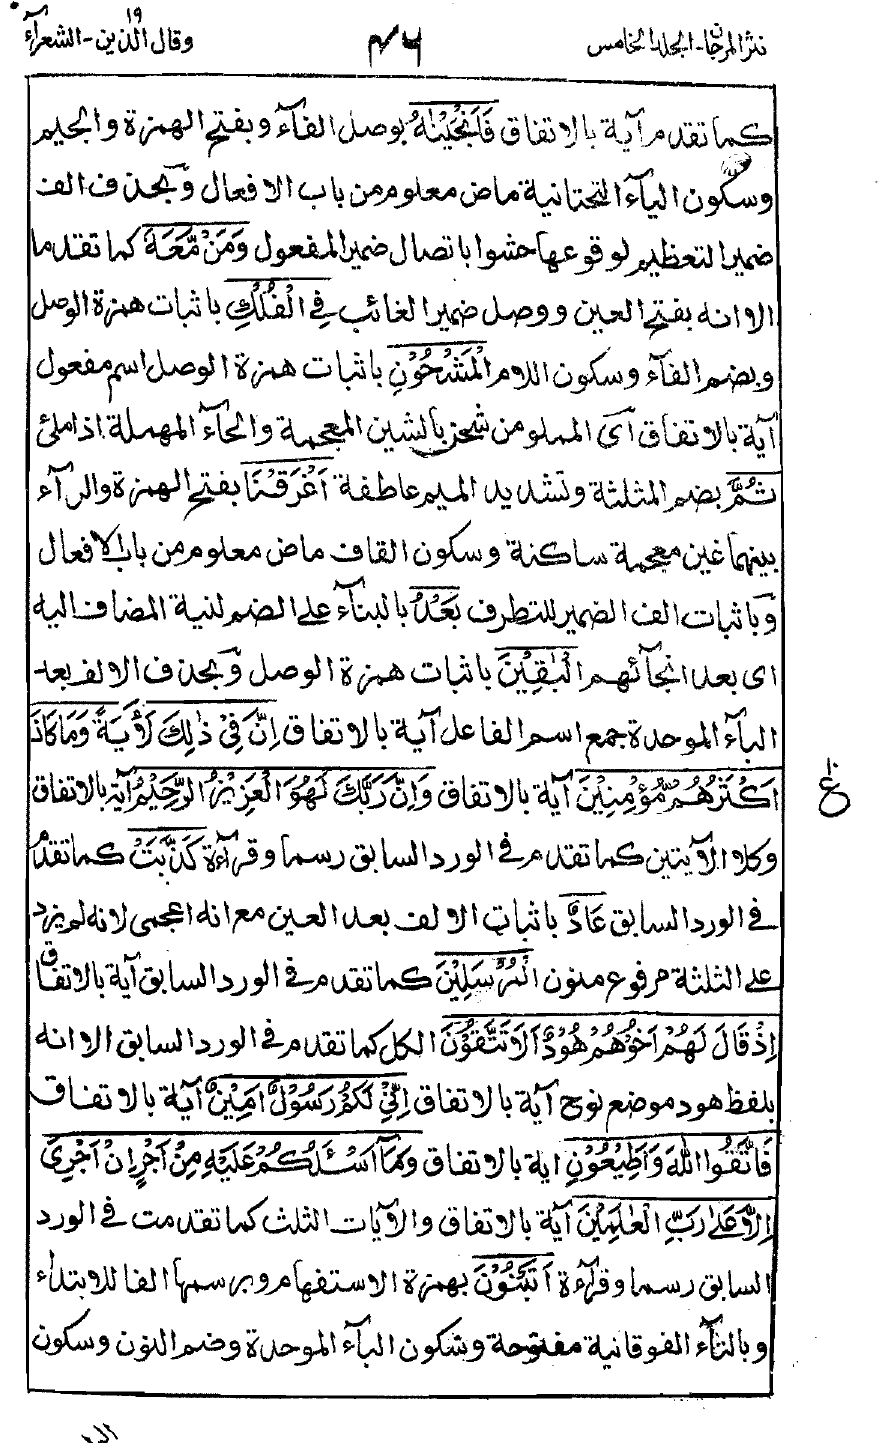 نثر المرجان - الجلد الخامس
٤٦
وقال الذين ١٩ - الشعرآء
كما تقدم آية بالاتفاق فَاَنْجَيْنٰهُ بوصل الفآء وبفتح الهمزة والجيم
وسكون اليآء التحتانية ماض معلوم من باب الافعال وَبحذف الف
ضمير التعظيم لوقوعها حشوا باتصال ضمير المفعول وَمَنْ مَّعَهٗ كما تقدما
الا انه بفتح العين ووصل ضمير الغائب فِي الْفُلْكِ باثبات همزة الوصل
وبضم الفآء وسكون اللام الْمَشْحُوْنِ باثبات همزة الوصل اسم مفعول
آية بالاتفاق آى المملو من شحن بالشين المعجمة والحآء المهملة اذا ملئ
ثُمَّ بضم المثلثة وتشديد الميم عاطفة اَغْرَقْنَا بفتح الهمزة والرآء
بينهما غين معجمة ساكنة وسكون القاف ماض معلوم من باب الافعال
وَباثبات الف الضمير للتطرف بَعْدُ بالبنآء على الضم لنية المضاف اليه
اى بعد انجآئهم الْبٰقِيْنَ باثبات همزة الوصل وَبحذف الالف بعد
البآء الموحدة جمع اسم الفاعل آية بالاتفاق اِنَّ فِيْ ذٰلِكَ لَاٰيَةً وَمَا كَانَ
اَكْثَرُهُمْ مُّؤْمِنِيْنَ آية بالاتفاق وَاِنَّ رَبَّكَ لَهُوَ الْعَزِيْزُ الرَّحِيْمُ آية بالاتفاق
ع
وكلا الآيتين كما تقدم في الورد السابق رسما وقرآءة كَذَّبَتْ كما تقدم
في الورد السابق عَادٌ باثبات الالف بعد العين مع انه اعجمى لانه لم يزد
على الثلثة مرفوع منون الْمُرْسَلِيْنَ كما تقدم في الورد السابق آية بالاتفاق
اِذْ قَالَ لَهُمْ اَخُوْهُمْ هُوْدٌ اَلَا تَتَّقُوْنَ الكل كما تقدم في الورد السابق الا انه
بلفظ هود موضع نوح آية بالاتفاق اِنِّيْ لَكُمْ رَسُوْلٌ اَمِيْنٌ آية بالاتفاق
فَاتَّقُوا اللّٰهَ وَاَطِيْعُوْنِ اية بالاتفاق وَمَآ اَسْـَٔلُكُمْ عَلَيْهِ مِنْ اَجْرٍ اِنْ اَجْرِيَ
اِلَّا عَلٰى رَبِّ الْعٰلَمِيْنَ آية بالاتفاق والآيات الثلث كما تقدمت في الورد
السابق رسما وقرآءة اَتَبْنُوْنَ بهمزة الاستفهام وبرسمها الفا للابتداء
وبالتآء الفوقانية مفتوحة وسكون البآء الموحدة وضم النون وسكون